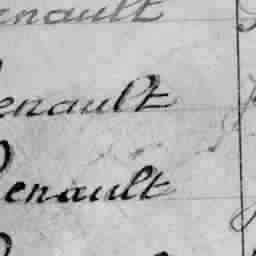 enault
enault
enault